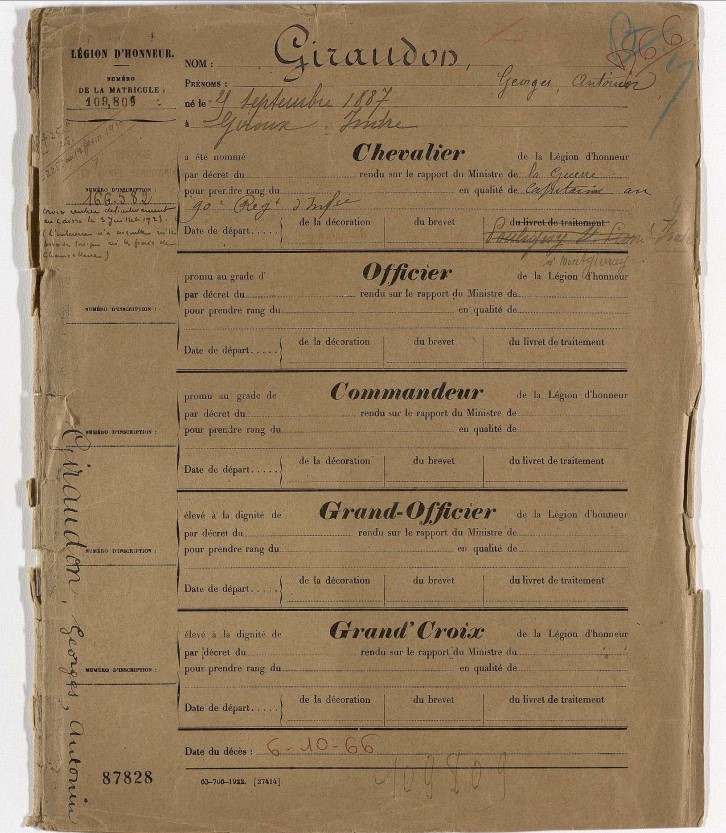 LÉGION D'HONNEUR.
NUMÉRO
DE LA MATRICULE :
109,809
NOM : Giraudon,
PRÉNOMS : Georges, Antonin
né le 4 Septembre 1887
à Giroux. Indre
a été nommé Chevalier de la Légion d'honneur
par décret du rendu sur le rapport du Ministre de la Guerre
pour prendre rang du en qualité de Capitaine au
90e Regt d'Infie
NUMÉRO D'INSCRIPTION :
166.382
Date de départ..... de la décoration du brevet du livret de traitement
promu au grade d' Officier de la Légion d'honneur
par décret du rendu sur le rapport du Ministre de
pour prendre rang du en qualité de
NUMÉRO D'INSCRIPTION :
Date de départ..... de la décoration du brevet du livret de traitement
promu au grade de Commandeur de la Légion d'honneur
par décret du rendu sur le rapport du Ministre de
pour prendre rang du en qualité de
NUMÉRO D'INSCRIPTION :
Date de départ..... de la décoration du brevet du livret de traitement
élevé à la dignité de Grand-Officier de la Légion d'honneur
par décret du rendu sur le rapport du Ministre de
pour prendre rang du en qualité de
NUMÉRO D'INSCRIPTION :
Date de départ..... de la décoration du brevet du livret de traitement
élevé à la dignité de Grand'Croix de la Légion d'honneur
par décret du rendu sur le rapport du Ministre du
pour prendre rang du en qualité de
NUMÉRO D'INSCRIPTION :
Date de départ..... de la décoration du brevet du livret de traitement
Date du décès : 6-10-66
87828
63-706-1922. [27414]
109809
Giraudon, Georges, Antonin